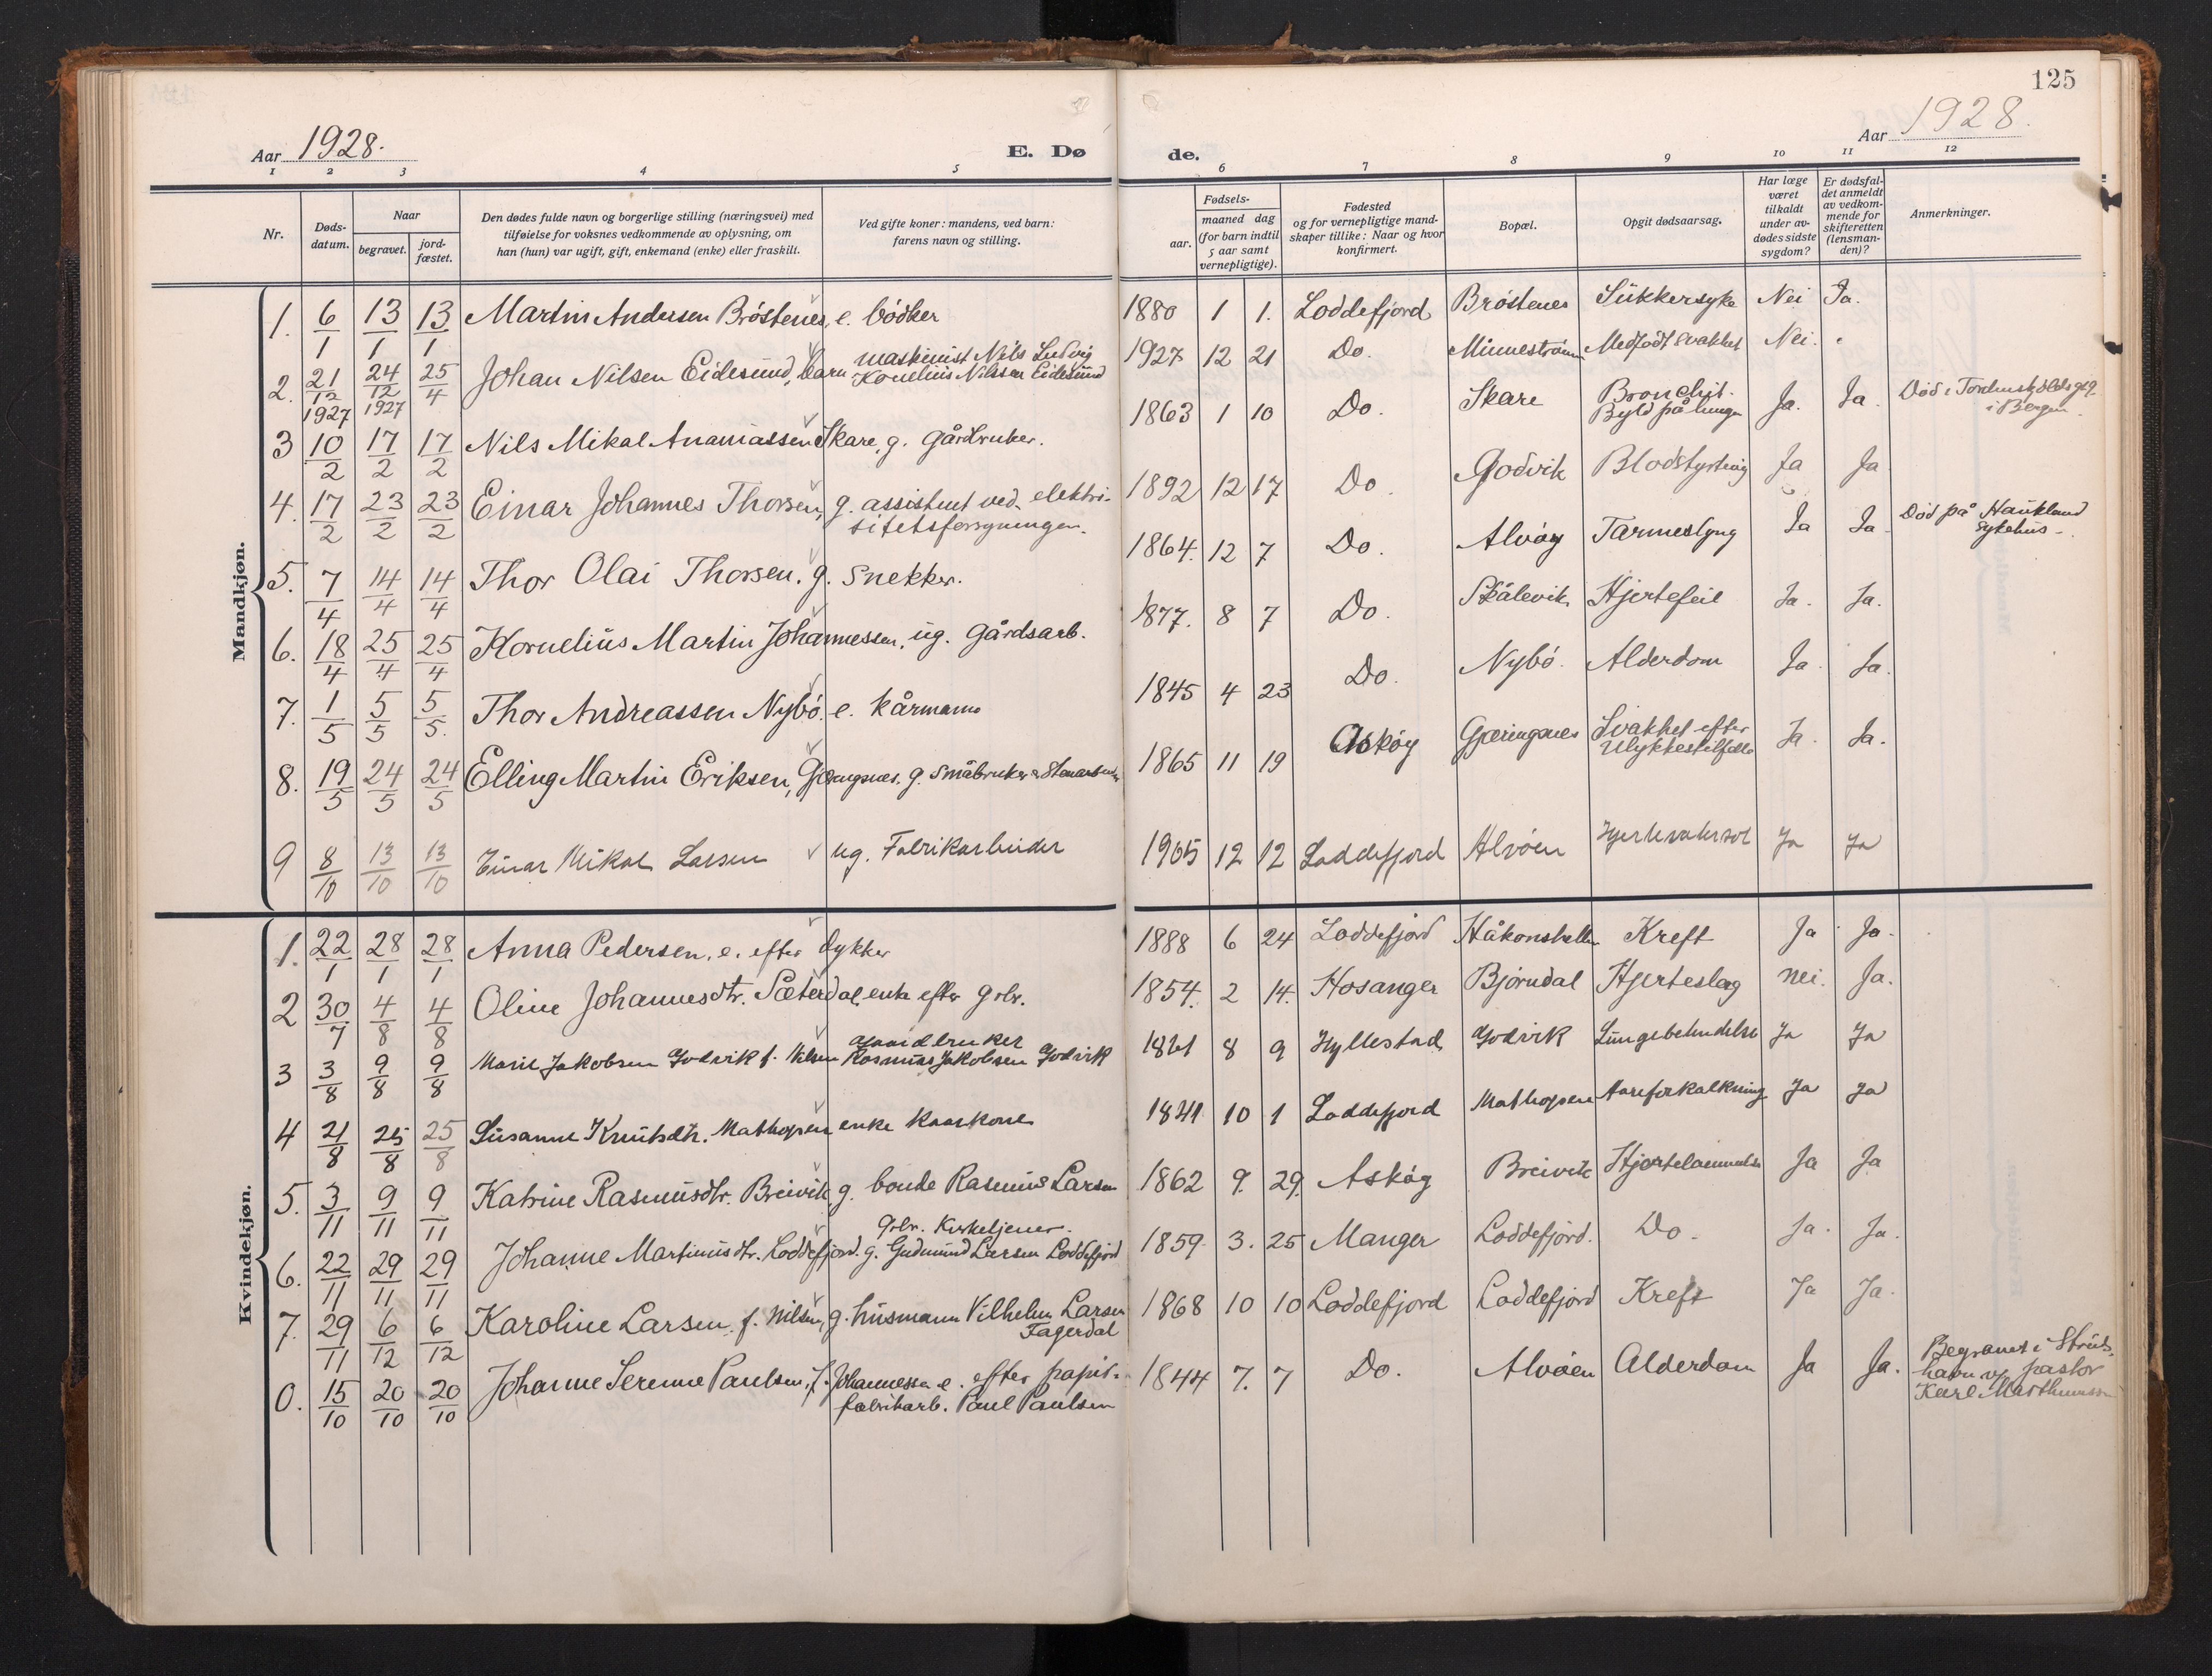 125
Aar 1928.
E. Dø
de.
Aar 1928.
1 2 3 4 5 6 7 8 9 10 11 12
Nr.
Døds-datum.
Naar
begravet.
jord-fæstet.
Den dødes fulde navn og borgerlige stilling (næringsvei) med
tilføielse for voksnes vedkommende av oplysning, om
han (hun) var ugift, gift, enkemand (enke) eller fraskilt.
Ved gifte koner: mandens, ved barn:
farens navn og stilling.
Fødsels-
aar.
maaned dag
(for barn indtil
5 aar samt
vernepligtige).
Fødested
og for vernepligtige mand-
skaper tillike: Naar og hvor
konfirmert.
Bopæl.
Opgit dødsaarsag.
Har læge
været
tilkaldt
under av-
dødes sidste
sygdom?
Er dødsfal-
det anmeldt
av vedkom-
mende for
skifteretten
(lensman-
den)?
Anmerkninger.
Mandkjøn.
1. 6/1 13/1 13/1 Martin Andersen Bröstenes, e. bödker 1880 1 1. Loddefjord Bröstenes Sükkersyke Nei Ja.
2. 21/12 1927 24/12 1927 25/4 Johan Nilsen Eidesund, barn maskinist Nils Ludvig
Kornelius Nilssen Eidesund 1927 12 21 Do. Minnestrømm Medfødt svakhet Nei.
3 10/2 17/2 17/2 Nils Mikal Ananiassen Skare, g. gårdbruker. 1863 1 10 Do. Skare Bronchit.
Byld på lunge Ja. Ja. Död i Tordenskjoldsgt.
i Bergen.
4. 17/2 23/2 23/2 Einar Johannes Thorsen, g. assistent ved elektri-
sitetsforsyningen. 1892 12 17 Do. Godvik Blodstyrtning Ja Ja
5. 7/4 14/4 14/4 Thor Olai Thorsen. g. Snekker. 1864. 12 7 Do. Alvöy Tarmeslyng Ja Ja. Död på Haukland
sykehus.
6. 18/4 25/4 25/4 Kornelius Martin Johannessen, ug. gårdsarb. 1877. 8 7 Do. Skålevik Hjertefeil Ja. Ja.
7. 1/5 5/5 5/5. Thor Andreassen Nybö. e. kårmann 1845 4 23 Do. Nybö. Alderdom Ja. Ja.
8. 19/5 24/5 24/5 Elling Martin Eriksen, Gjæringsnes. g. småbruker 1865 11 19 Askøy Gjæringsnes Svakhet efter
Ulykkestilfelle Ja. Ja.
9 8/10 13/10 13/10 Einar Mikal Larsen ug. Fabrikarbeider 1905 12 12 Loddefjord Alvöen Ja Ja
Kvindekjøn.
1. 22/1 28/1 28/1 Anna Pedersen, e. efter dykker 1888 6 24 Loddefjord Håkonshellen Kreft Ja Ja.
2 30/7 4/8 4/8 Oline Johannesdtr. Sæterdal, enke efter grbr. 1854. 2 14. Hosanger Björndal Hjerteslag nei. Ja.
3 3/8 9/8 9/8 Marie Jakobsen Godvik f. Nilsen gaardbruker
Rasmus Jakobsen Godvik 8 9 Hyllestad Godvik Lungebetendelse Ja Ja
4 21/8 25/8 25/8 Susanne Knutsdtr. Mathopen enke kaarkone 1841 10 1 Loddefjord Mathopen Aareforkalkning Ja Ja
5. 3/11 9/11 9/11 Katrine Rasmusdtr. Breivik, g. bonde Rasmus Larsen 1862 9. 29. Askøy Breivik Hjertelammelse Ja Ja
6. 22/11 29/11 29/11 Johanne Martinusdtr. Loddefjord. g. grbr. Kirketjener.
Gudmund Larsen Loddefjord 1859. 3. 25 Manger Loddefjord. Do. Ja. Ja.
7. 29/11 6/12 6/12 Karoline Larsen. f. Nilsen, g. husmann Vilhelm Larsen
Fagerdal 1868 10 10 Loddefjord Loddefjord Kreft Ja Ja.
0. 15/10 20/10 20/10 Johanne Serenne Paulsen, f. Johannessen e. efter papir-
fabrikarb. Paul Paulsen 1844 7. 7 Do. Alvöen Alderdom Ja Ja. Begravet i Strus-
havn v/ pastor
Karl Marthinussen